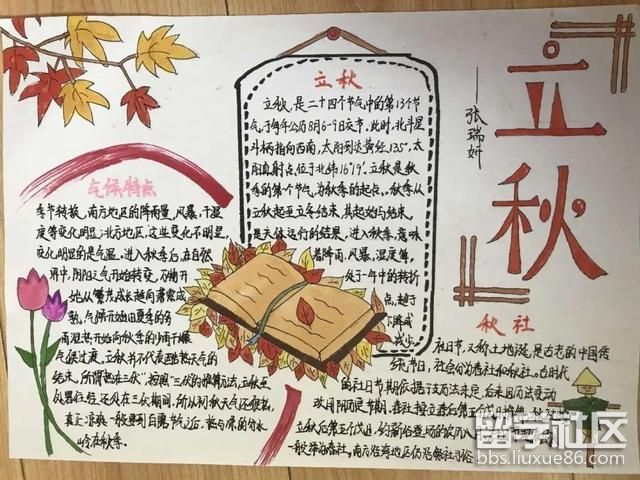 立秋
——张瑞妍
立秋
立秋,是二十四个节气中的第13个节
气,于每年公历8月6-9日交节。此时,北斗星
斗柄指向西南,太阳到达黄经135°,太
阳直射点位于北纬16°19′。立秋是秋
季的第一个节气,为秋季的起点。秋季从
立秋起至立冬结束,其起始与结束,
是天体运行的结果。进入秋季,意味
着降雨、风暴、湿度等,
处于一年中的转折
点,趋于
下降或
减少。
气候特点
季节转换,南方地区的降雨量、风暴、干湿
度等变化明显;北方地区,这些变化不明显,
变化明显的是气温。进入秋季后,在自然
界中,阴阳之气开始转变,万物开
始从繁茂成长趋向萧索成
熟。气候开始由夏季的多
雨湿热开始向秋季的少雨干燥
气候过渡。立秋并不代表酷热天气的
结束,所谓"热在三伏"
还处在三伏期间,所以初秋天气还很热,
真正凉爽一般要到白露节气之后。
秋社
社日节,又称土地诞,是古老的中国传
统节日,社日分为春社和秋社。古时代
的社日节期依据干支历法来定,后来因历法变动
改用阴历定节期。春社按立春后第五个戊日推算
立秋后第五个戊日,约新谷登场的
一般举办春社,南方沿海地区仍沿袭社日俗
留学社区
bbs.liuxue86.com